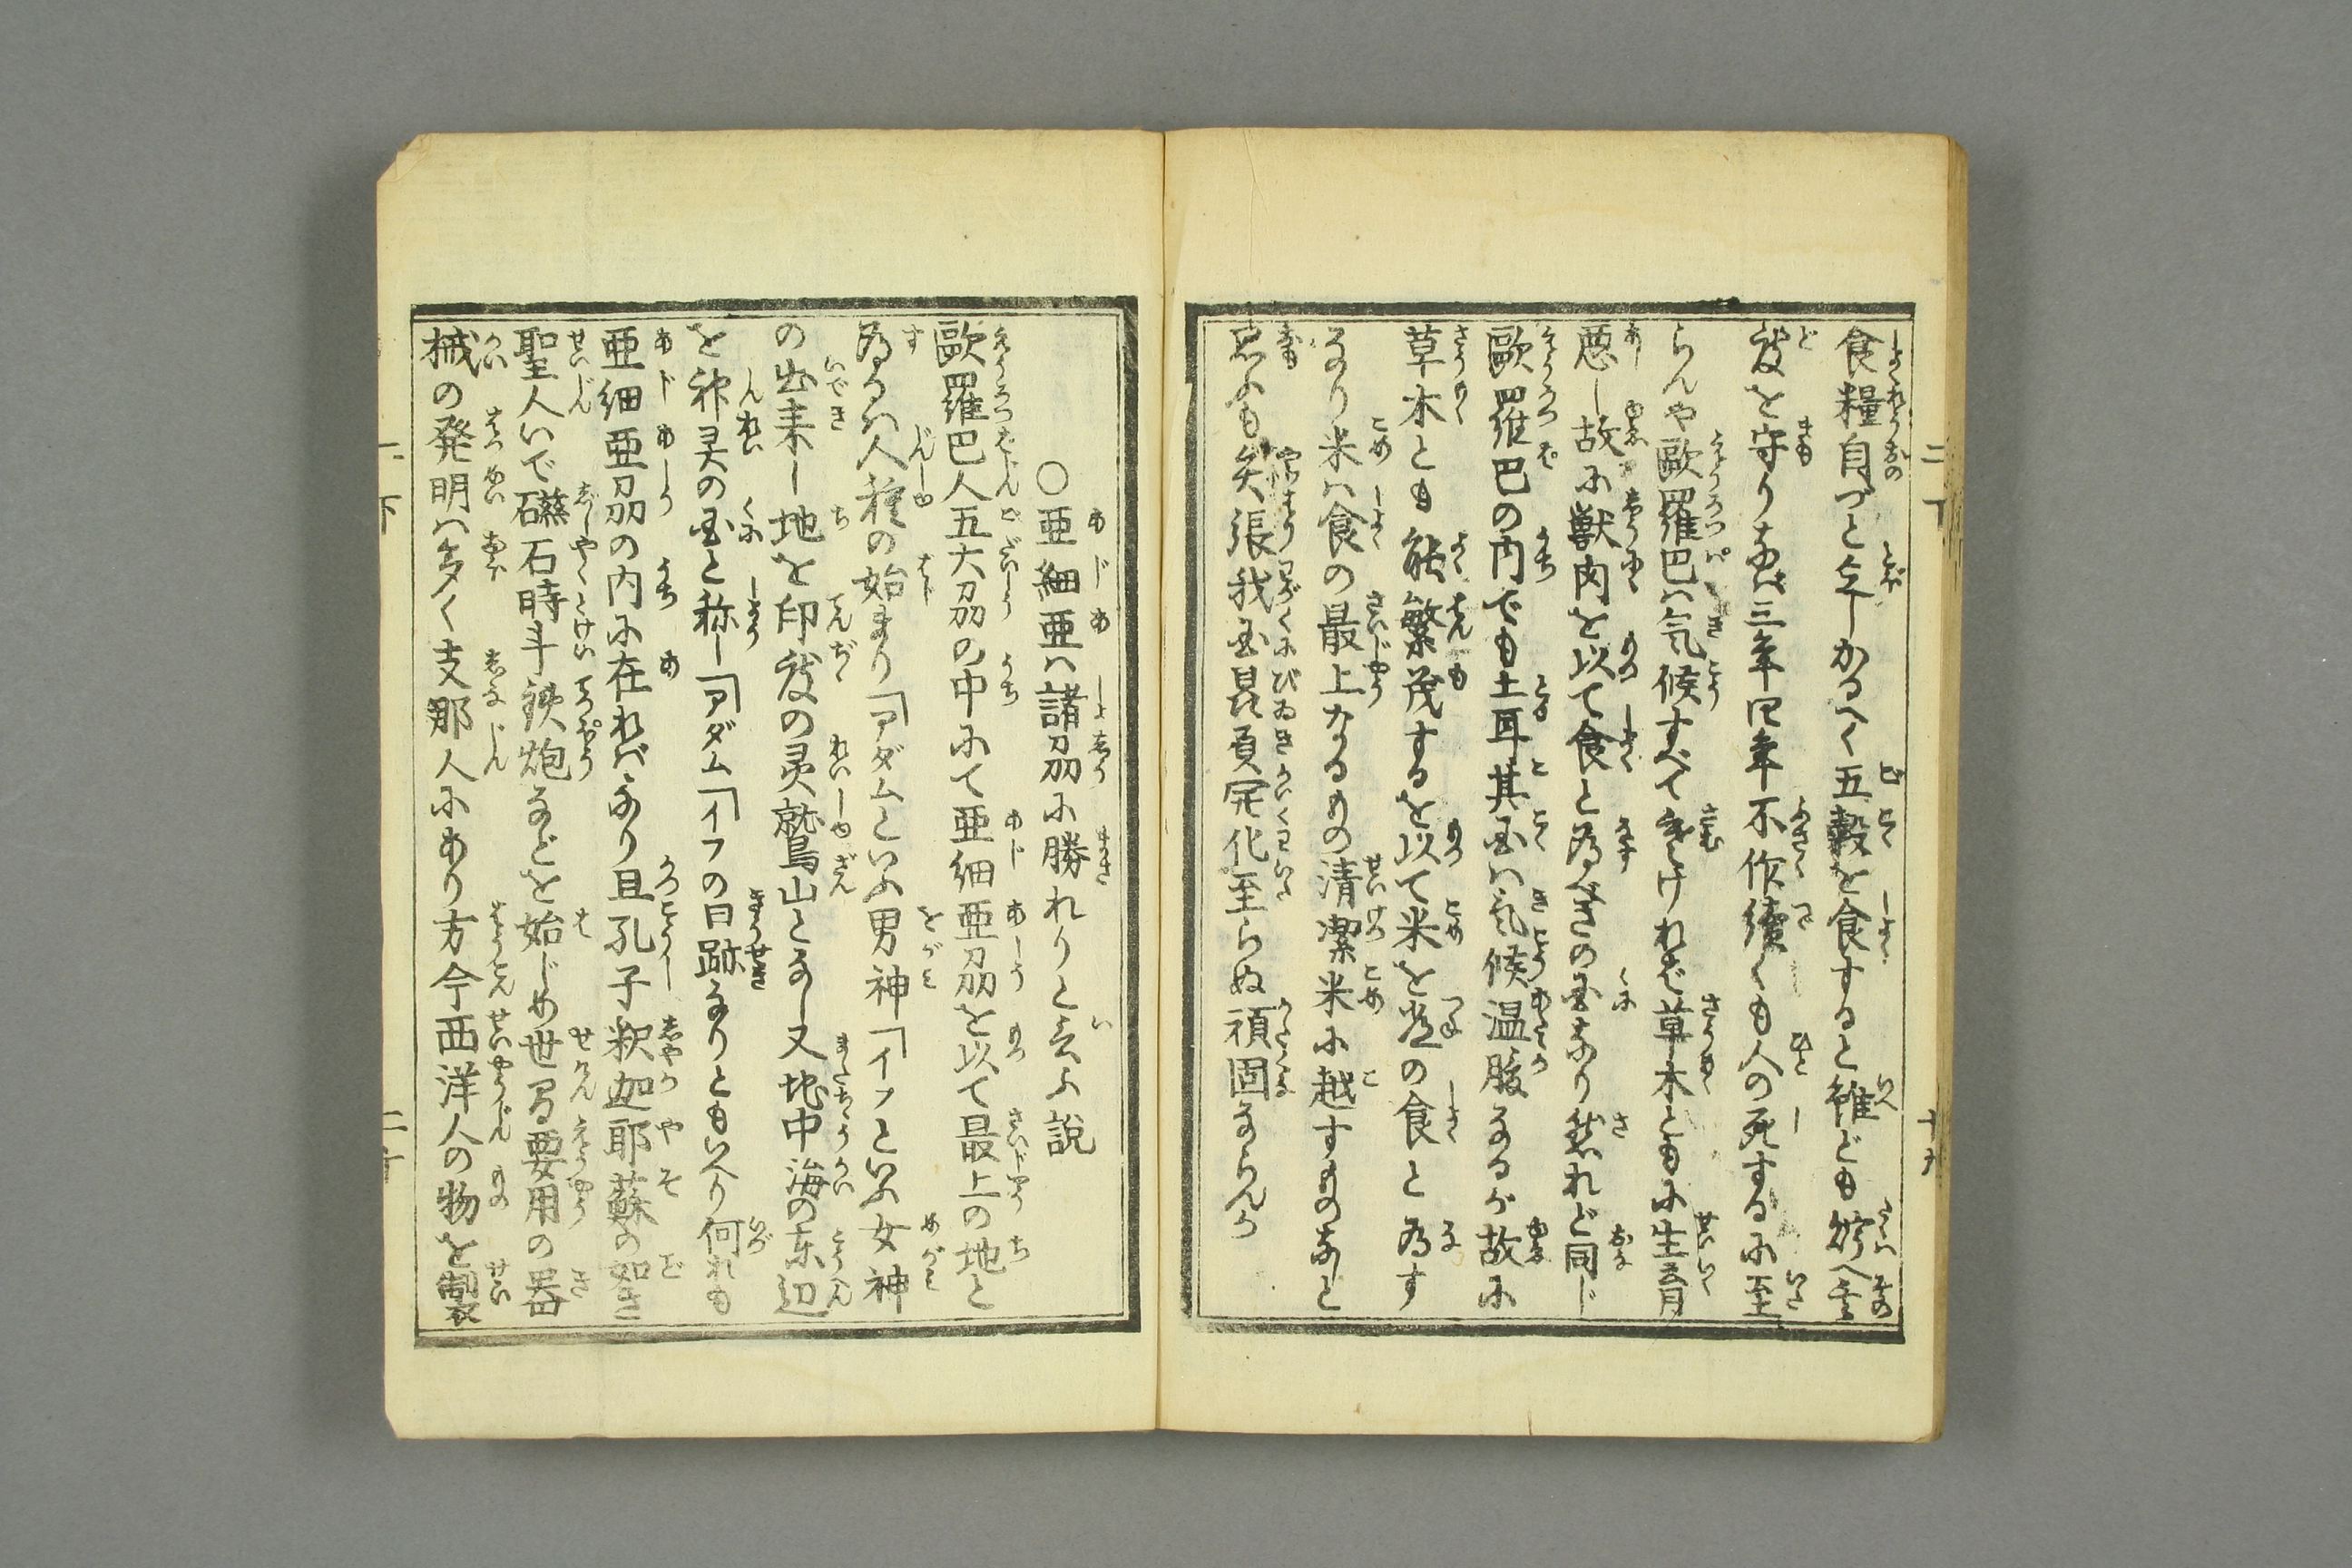 食糧自づと乏しかるべく五穀を食すると雖ども貯へ其
度を守りなば三年四年不作續くも人の死するに至
らんや歐羅巴は気候すべて寒けれど草木ともに生育
悪し故に獣肉を以て食と為べきの国なり然れど同じ
歐羅巴の内でも土耳其国は気候温暖なるが故に
草木とも能繁茂するを以て米を常の食と為す
なり米は食の最上なるもの清潔米に越すものなしと
思ふも矢張我国昆貭開化至らぬ頑固ならんか
〇亜細亜は諸刕に勝れりと云ふ説
歐羅巴人五大刕の中にて亜細亜刕を以て最上の地と
為るは人種の始まり「アダムといふ男神「イフといふ女神
の出来し地を印度の灵鷲山となし又地中海の东辺
を神灵の国と称し「アダム「イフの旧跡なりともいへり何れも
亜細亜刕の内に在ればなり且孔子釈迦耶蘇の如き
聖人いで礠石時斗鉄炮などを始じめ世間要用の器
械の発明は多く支那人にあり方今西洋人の物を製